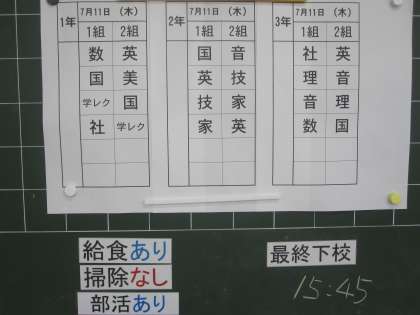 1年 7月11日 (木) 2年 7月11日 (木) 3年 7月11日 (木)
1組 2組 1組 2組 1組 2組
数 英 国 音 社 英
国 美 英 技 理 音
学レク 国 技 家 音 理
社 学レク 家 英 数 国
給食あり
掃除なし
部活あり
最終下校
15:45